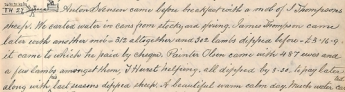 TW 27 Anton Svenson came before breakfast with a mob of J Thompson's
sheep. We carted water in cans from stockyard spring. James Thompson came
later with another mob - 312 altogether and 302 lambs dipped before - £3.16.9.
it came to which he paid by cheque. Painter Olsen came with 487 ewes and
a few lambs amongst them, J Hurst helping, all dipped by 5-30 to pay later
along with last season's dipped sheep. A beautiful warm calm day. Much water